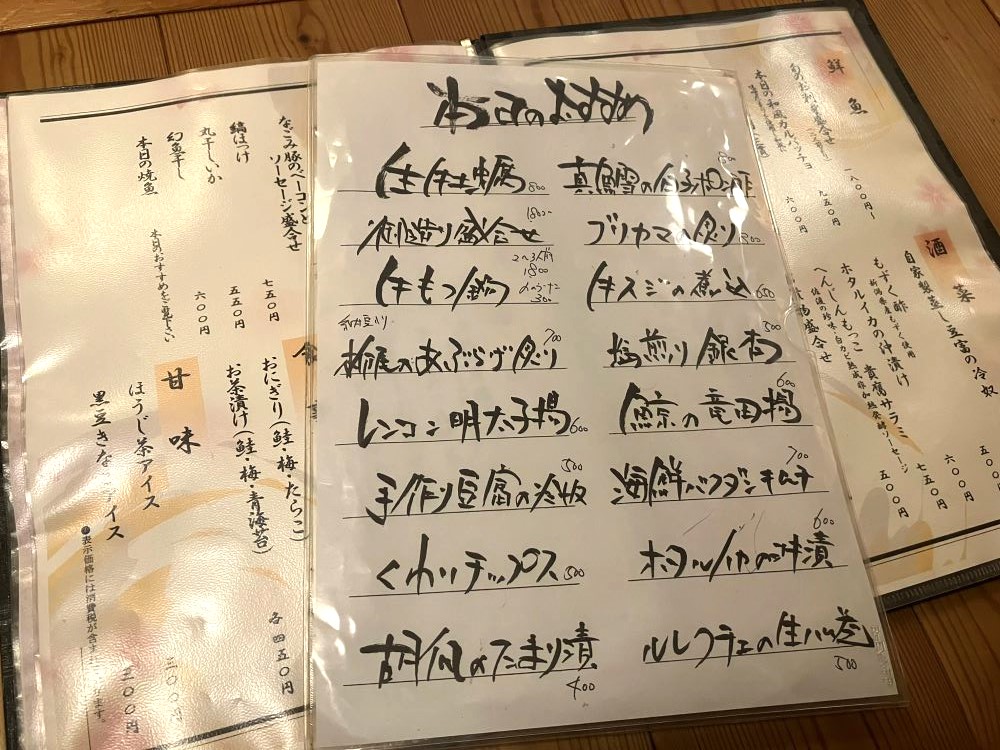 本日のおすすめ
生牡蠣 800
真鱈の白子ポン酢 800
御造り盛合せ 1800〜
2〜3人前
ブリカマの炙り 800
牛もつ鍋 1800
〆のラーメン 300
牛スジの煮込 650
納豆入り
栃尾のあぶらげ炙り 700
塩煎り銀杏 500
レンコン明太子揚 600
鯨の竜田揚 600
手作り豆腐の冷奴 500
海鮮バクダンキムチ 700
くわいチップス 500
ホタルイカの沖漬 600
胡瓜のたまり漬 400
ルレクチェの生ハム巻 500
鮮魚
旬のお刺身盛合せ 一八〇〇円〜
本日の和風カルパッチョ 九五〇円
六〇〇円
酒菜
自家製蒸し豆富の冷奴 五〇〇円
もずく酢 五〇〇円
新潟県産もずく使用
ホタルイカの沖漬け 六〇〇円
貴腐サラミ 七五〇円
白カビ熟成非加熱発酵ソーセージ
へんじんもっこ
佐渡の珍味
盛合せ 五〇〇円
なごみ豚のベーコンと
ソーセージ盛合せ 七五〇円
縞ほっけ 五五〇円
丸干しいか 六〇〇円
幻魚干し
本日の焼魚
本日のおすすめをご覧下さい
おにぎり(鮭・梅・たらこ)
お茶漬け(鮭・梅・青海苔) 各四五〇円
甘味
ほうじ茶アイス 三〇〇円
黒豆きな アイス 三〇〇円
表示価格には消費税が含まれております。